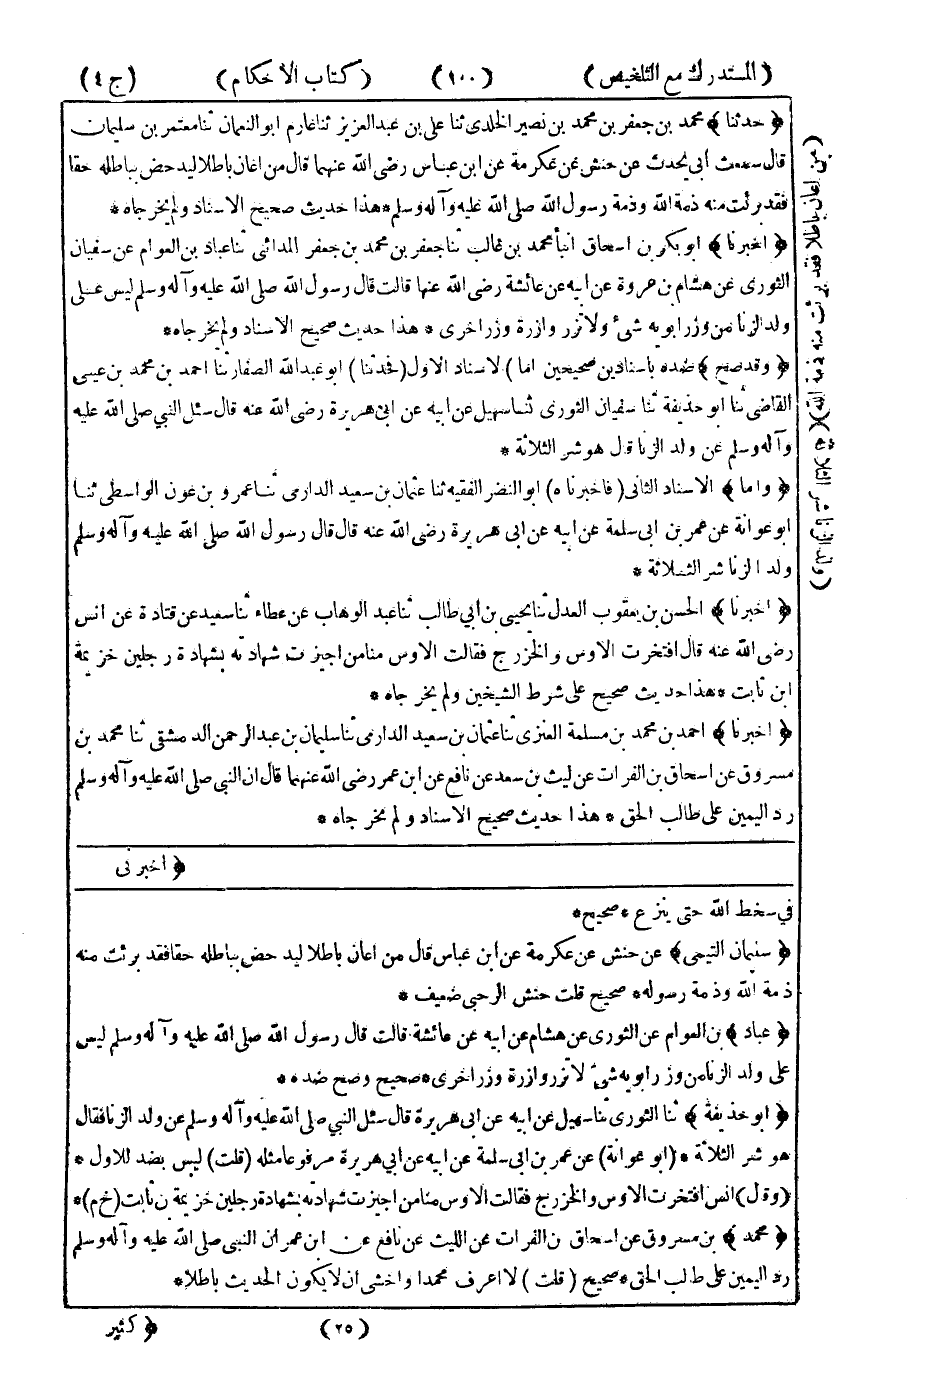 (المستدرك مع التلخيص) (١٠٠) (كتاب الاحكام) (ج ٤)
﴿ حدثنا ﴾ محمد بن جعفر بن محمد بن نصير الخلدى ثنا على بن عبدالعزيز ثنا عارم ابو النعمان ثنا معتمر بن سليمان
قال سمعت أبى يحدث عن حنش عن عكرمة عن ابن عباس رضى الله عنهما قال من اعان باطلا ليدحض بباطله حقا
فقد برئت منه ذمة الله وذمة رسول الله صلى الله عليه وآله وسلم * هذا حديث صحيح الاسناد ولم يخرجاه *
﴿ اخبرنا ﴾ ابوبكر بن اسحاق انبأ محمد بن غالب ثنا جعفر بن محمد بن جعفر المدائنى ثنا عباد بن العوام عن سفيان
الثورى عن هشام بن عروة عن ابيه عن عائشة رضى الله عنها قالت قال رسول الله صلى الله عليه وآله وسلم ليس على
ولد الزنا من وزر ابويه شئ ولا تزر وازرة وزر اخرى * هذا حديث صحيح الاسناد ولم يخرجاه *
﴿ وقد صح ﴾ ضده باسنادين صحيحين اما ) لاسناد الاول (فحدثنا ) ابو عبدالله الصفار ثنا احمد بن محمد بن عيسى
القاضى ثنا ابو حذيفة ثنا سفيان الثورى ثنا سهيل عن ابيه عن ابى هريرة رضى الله عنه قال سئل النبي صلى الله عليه
وآله وسلم عن ولد الزنا قال هو شر الثلاثة *
﴿ واما ﴾ الاسناد الثانى ( فاخبرناه ) ابو النضر الفقيه ثنا عثمان بن سعيد الدارمى ثنا عمرو بن عون الواسطى ثنا
ابو عوانة عن عمر بن ابى سلمة عن ابيه عن ابى هريرة رضى الله عنه قال قال رسول الله صلى الله عليه وآله وسلم
ولد الزنا شر الثلاثة *
﴿ اخبرنا ﴾ الحسن بن يعقوب العدل ثنا يحيى بن أبي طالب ثنا عبد الوهاب عن عطاء ثنا سعيد عن قتادة عن انس
رضى الله عنه قال افتخرت الاوس والخزرج فقالت الاوس منا من اجيزت شهادته بشهادة رجلين خزيمة
ابن ثابت * هذا حديث صحيح على شرط الشيخين ولم يخرجاه *
﴿ اخبرنا ﴾ احمد بن محمد بن مسلمة العنزى ثنا عثمان بن سعيد الدارمى ثنا سليمان بن عبدالرحمن الدمشقى ثنا محمد بن
مسروق عن اسحاق بن الفرات عن ليث بن سعد عن نافع عن ابن عمر رضى الله عنهما قال ان النبي صلى الله عليه وآله وسلم
رد اليمين على طالب الحق * هذا حديث صحيح الاسناد ولم يخرجاه *
﴿ اخبرنى
في سخط الله حتى ينزع * صحيح *
﴿ سليمان التيمى ﴾ عن حنش عن عكرمة عن ابن عباس قال من اعان باطلا ليدحض بباطله حقا فقد برئت منه
ذمة الله وذمة رسوله * صحيح قلت حنش الرحبى ضعيف *
﴿ عباد ﴾ بن العوام عن الثورى عن هشام عن ابيه عن عائشة قالت قال رسول الله صلى الله عليه وآله وسلم ليس
على ولد الزنا من وزر ابويه شئ لا تزر وازرة وزر اخرى * صحيح وصح ضده *
﴿ ابو حذيفة ﴾ ثنا الثورى ثنا سهيل عن ابيه عن ابى هريرة قال سئل النبي صلى الله عليه وآله وسلم عن ولد الزنا فقال
هو شر الثلاثة * (ابو عوانة) عن عمر بن ابى سلمة عن ابيه عن ابى هريرة مرفوعا مثله (قلت) ليس بضد للاول *
(وقال) انس افتخرت الاوس والخزرج فقالت الاوس منا من اجيزت شهادته بشهادة رجلين خزيمة بن ثابت (خ م) *
﴿ محمد ﴾ بن مسروق عن اسحاق بن الفرات عن الليث عن نافع عن ابن عمر ان النبى صلى الله عليه وآله وسلم
رد اليمين على طالب الحق * صحيح ( قلت ) لا اعرف محمدا واخشى ان لا يكون الحديث باطلا *
(٢٥) ﴿ كثير
(من اعان باطلا فقد برئت منه ذمة الله)
(ولد الزنا شر الثلاثة)